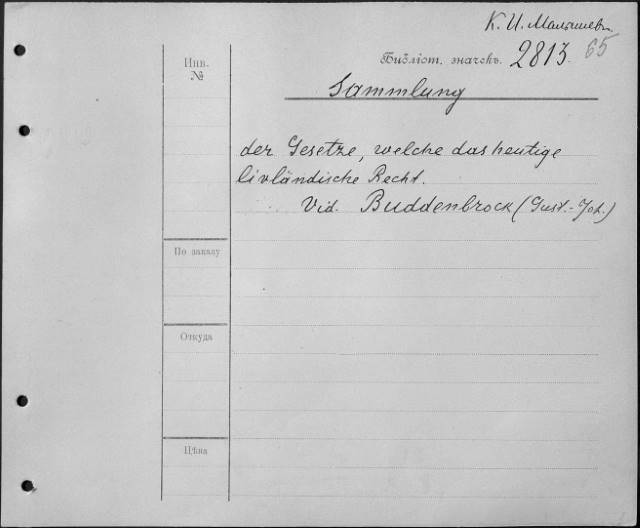 К. И. Малышевъ
Библіот. значекъ. 2813. 65
Инв.
№
Sammlung
der Gesetze, welche das heutige
livländische Recht.
Vid. Buddenbrock (Gust.-Joh.)
По заказу
Откуда
Цѣна